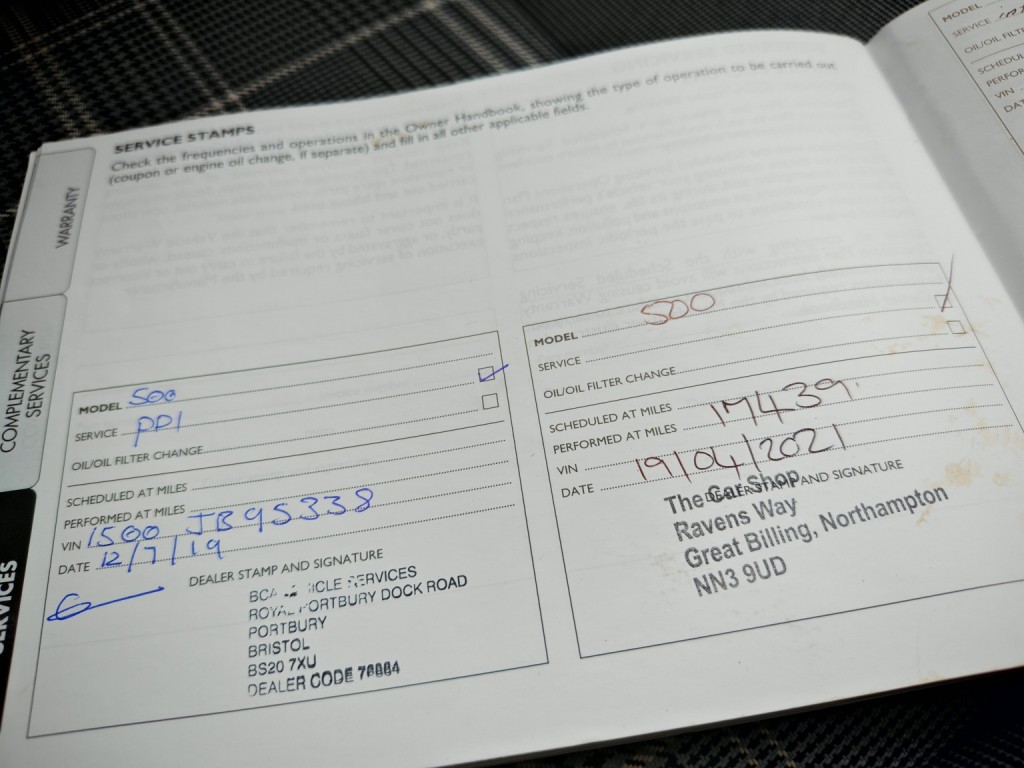 SERVICE STAMPS
Check the frequencies and operations in the Owner Handbook, showing the type of operation to be carried out
(coupon or engine oil change, if separate) and fill in all other applicable fields.
WARRANTY
COMPLEMENTARY
SERVICES
SERVICES
MODEL 500
SERVICE PDI
OIL/OIL FILTER CHANGE
SCHEDULED AT MILES
PERFORMED AT MILES
VIN 1500 JB95338
DATE 12/7/19
DEALER STAMP AND SIGNATURE
BCA SERVICES
ROYAL PORTBURY DOCK ROAD
PORTBURY
BRISTOL
BS20 7XU
DEALER CODE
MODEL 500
SERVICE
OIL/OIL FILTER CHANGE
SCHEDULED AT MILES
PERFORMED AT MILES 17439
VIN
DATE 19/04/2021
DEALER STAMP AND SIGNATURE
The Car Shop
Ravens Way
Great Billing, Northampton
NN3 9UD
MODEL
SERVICE
OIL/OIL FILT
SCHEDUL
PERFOR
VIN
DAT